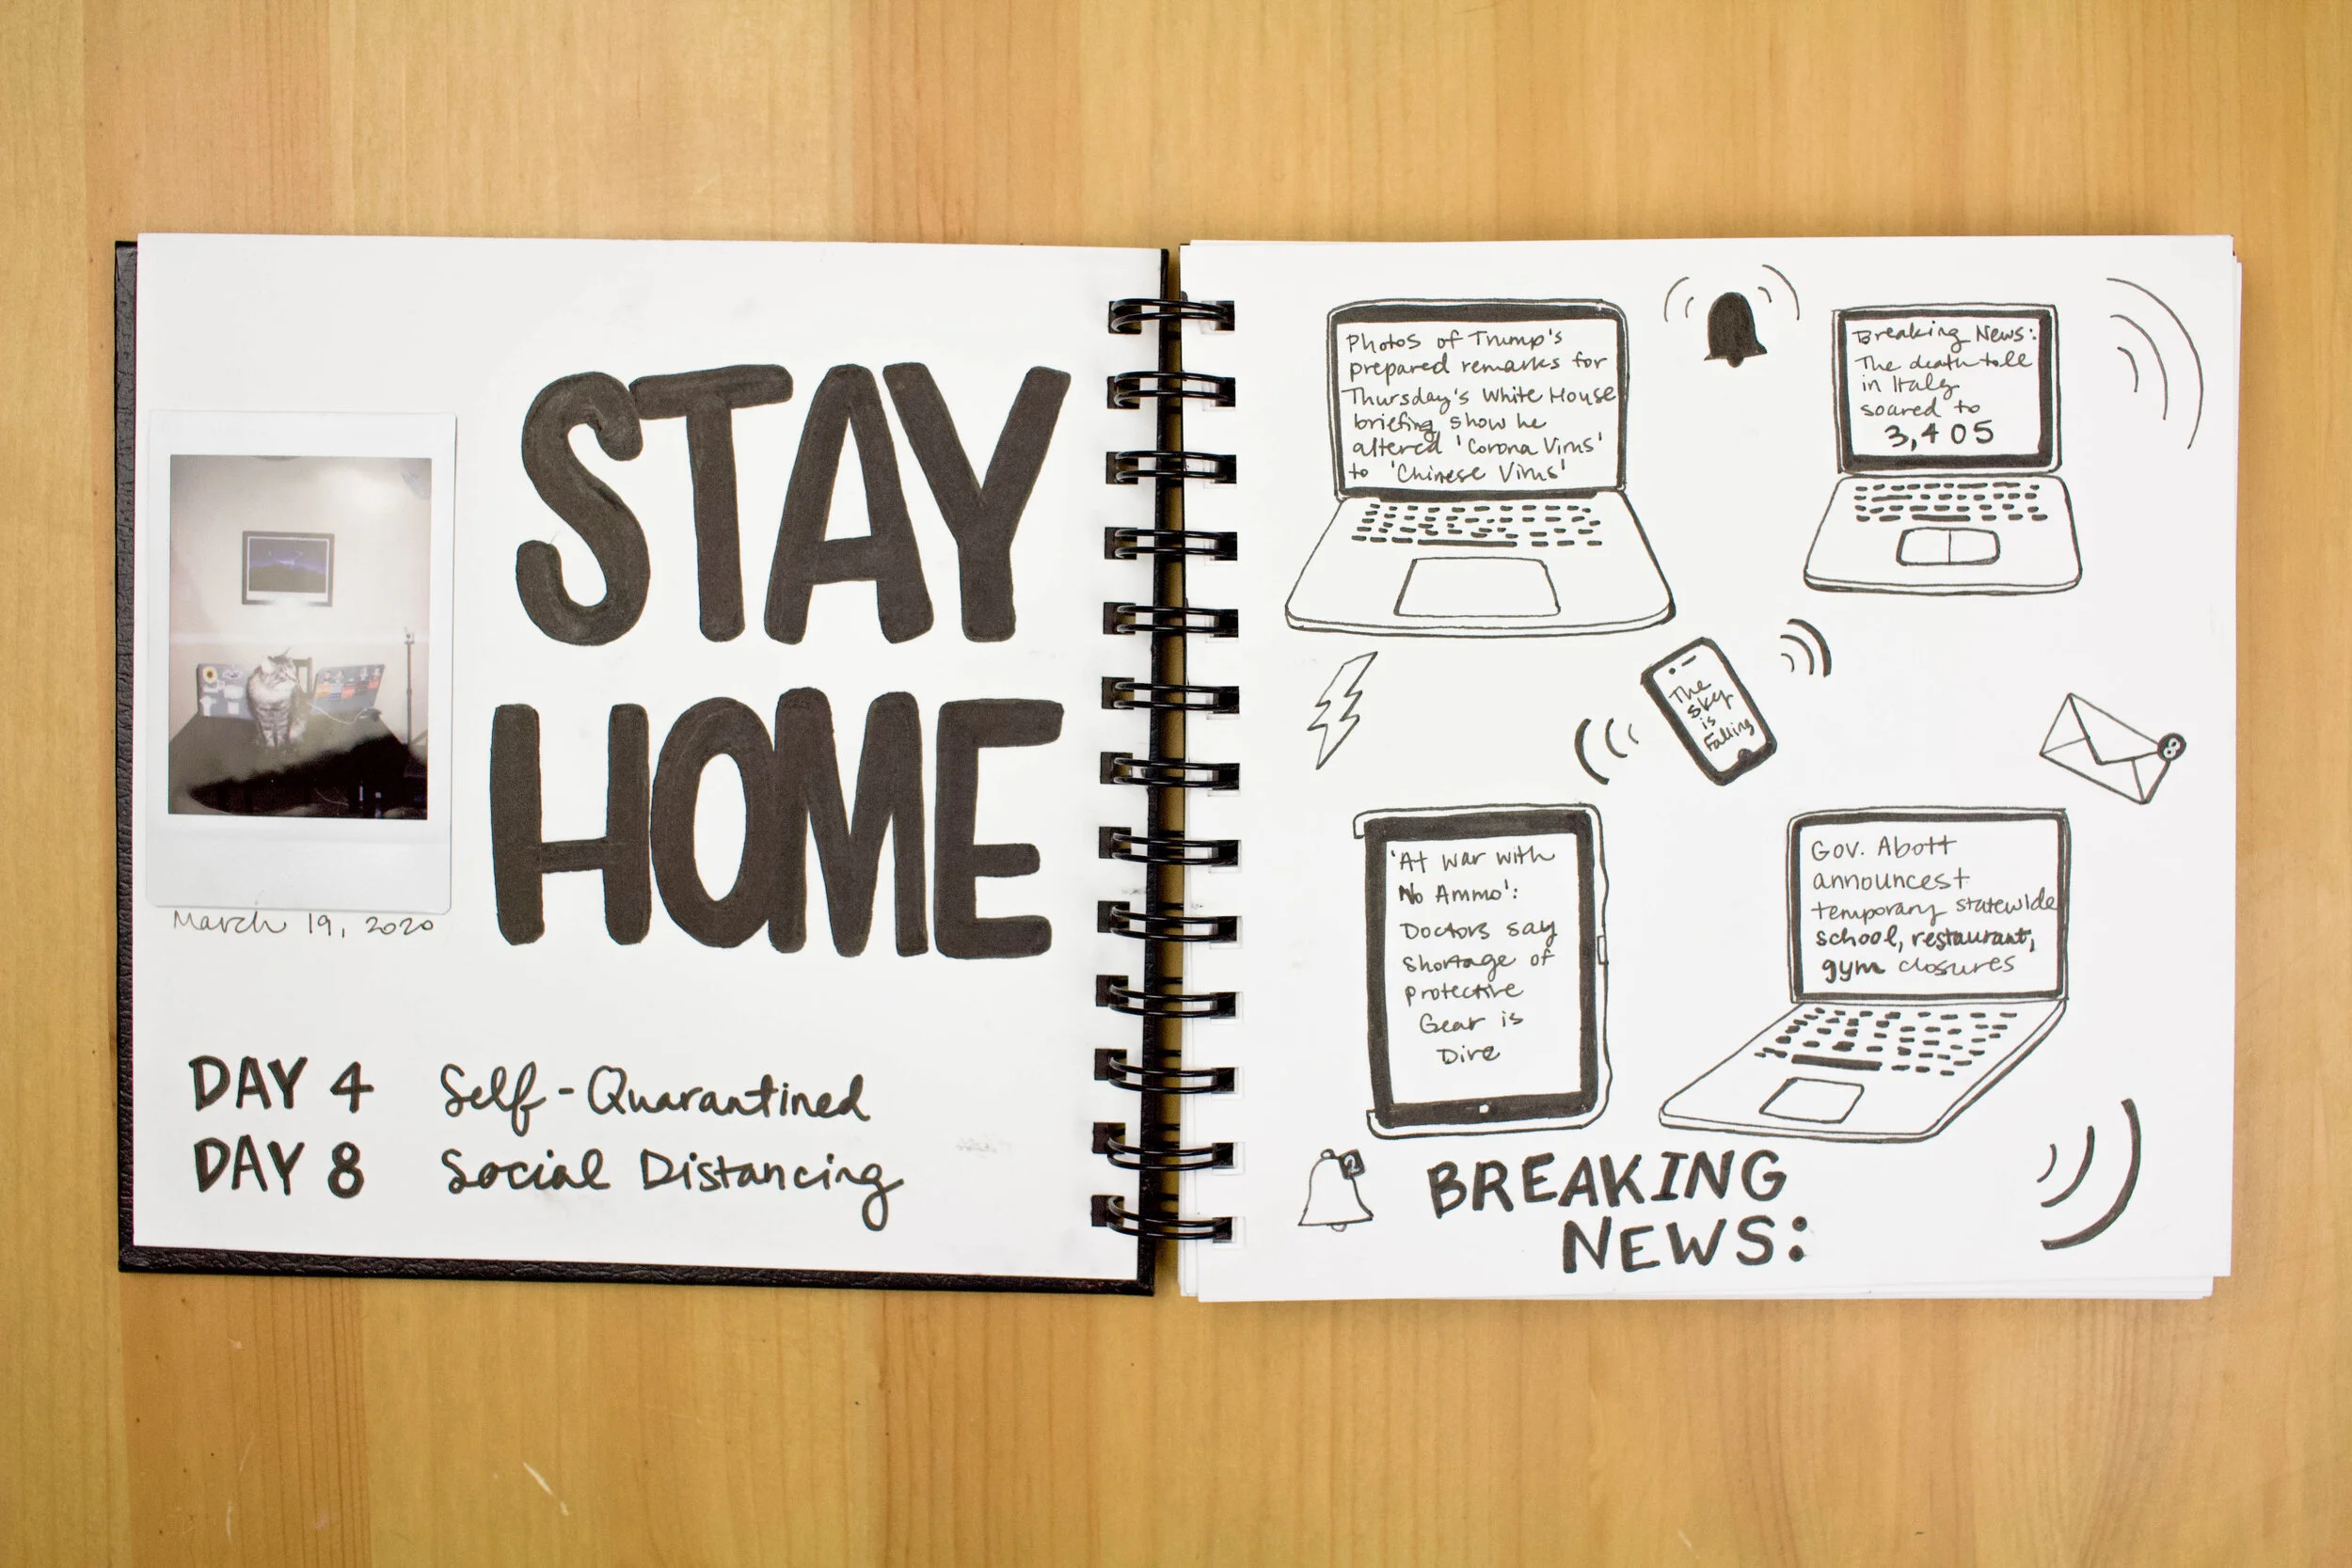 STAY
HOME
March 19, 2020
DAY 4 Self-Quarantined
DAY 8 Social Distancing
Photos of Trump's
prepared remarks for
Thursday's White House
briefing show he
altered 'Corona Virus'
to 'Chinese Virus'
Breaking News:
The death toll
in Italy
soared to
3,405
The
sky
is
Falling
8
'At war with
No Ammo':
Doctors say
shortage of
protective
Gear is
Dire
Gov. Abott
announcest
temporary statewide
school, restaurant,
gym closures
2
BREAKING
NEWS: